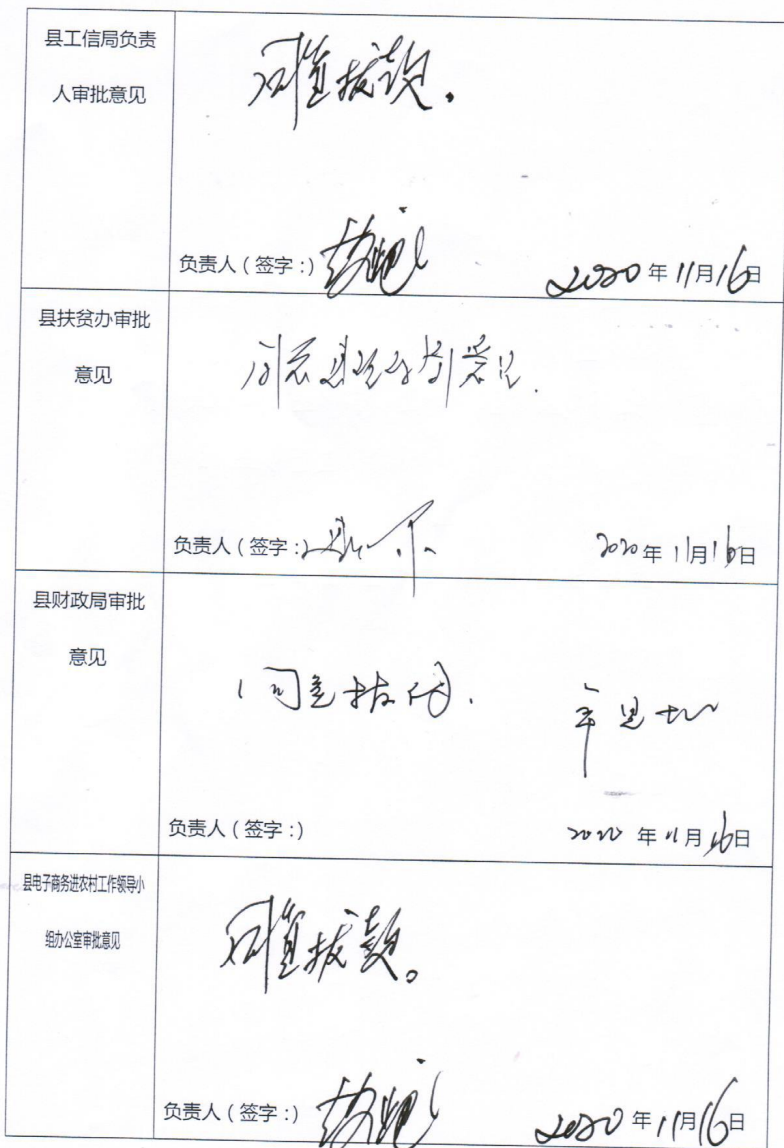 县工信局负责
人审批意见
同意拨款。
负责人(签字:)
2020年11月16日
县扶贫办审批
意见
同意
意见.
负责人(签字:)
2020年11月16日
县财政局审批
意见
同意拨付.
负责人(签字:)
2020年11月16日
县电子商务进农村工作领导小
组办公室审批意见
同意拨款。
负责人(签字:)
2020年11月16日